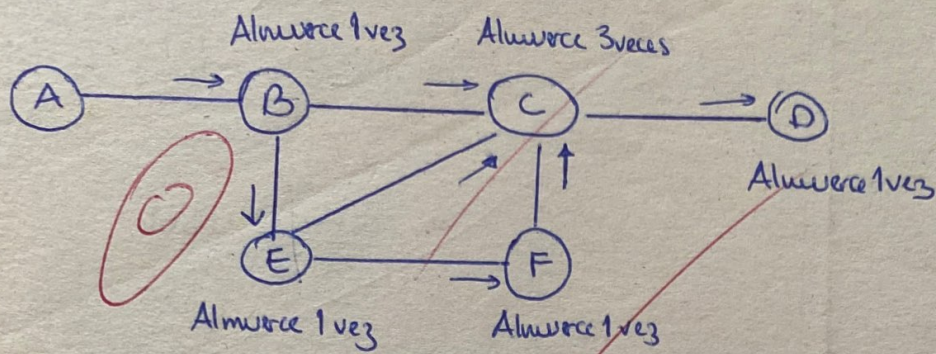 Almuerce 1 vez Almuerce 3 veces
A B C D
Almuerce 1 vez
E F
Almuerce 1 vez Almuerce 1 vez